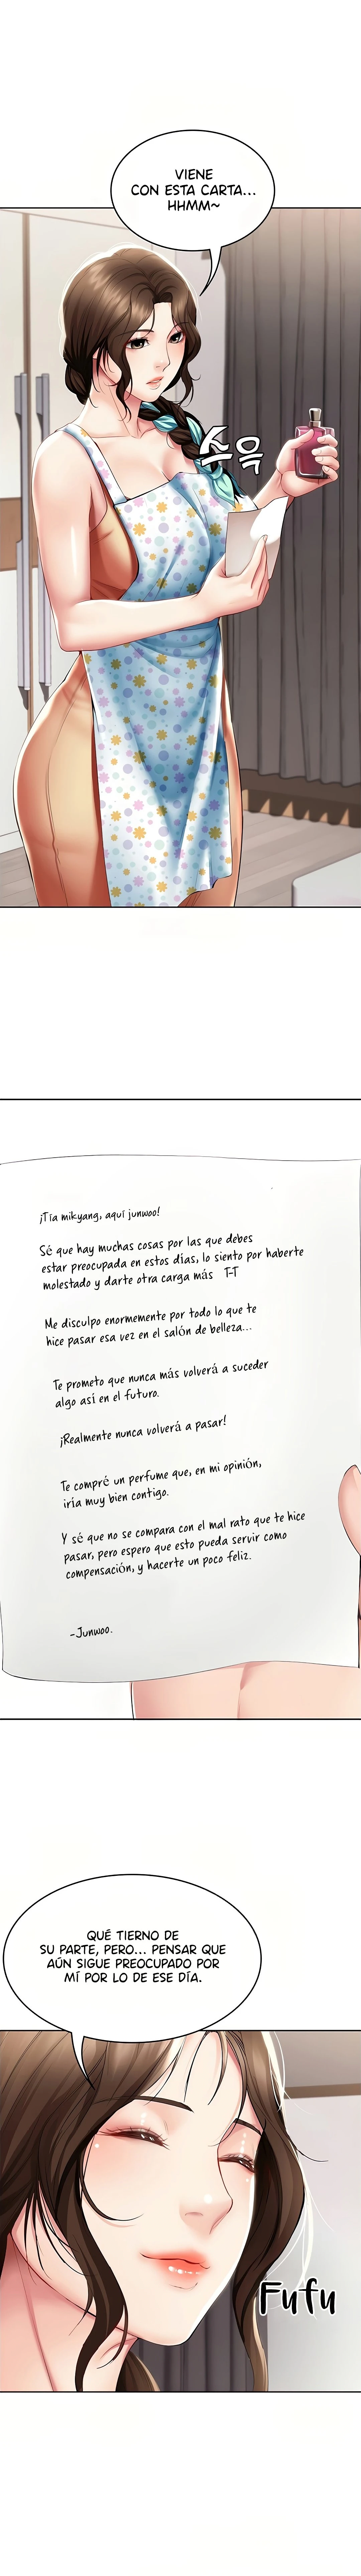 VIENE
CON ESTA CARTA...
HHMM~
스윽
¡Tía mikyang, aquí junwoo!
Sé que hay muchas cosas por las que debes
estar preocupada en estos días, lo siento por haberte
molestado y darte otra carga más T-T
Me disculpo enormemente por todo lo que te
hice pasar esa vez en el salón de belleza...
Te prometo que nunca más volverá a suceder
algo así en el futuro.
¡Realmente nunca volverá a pasar!
Te compré un perfume que, en mi opinión,
iría muy bien contigo.
Y sé que no se compara con el mal rato que te hice
pasar, pero espero que esto pueda servir como
compensación, y hacerte un poco feliz.
-Junwoo.
QUÉ TIERNO DE
SU PARTE, PERO... PENSAR QUE
AÚN SIGUE PREOCUPADO POR
MÍ POR LO DE ESE DÍA.
Fufu